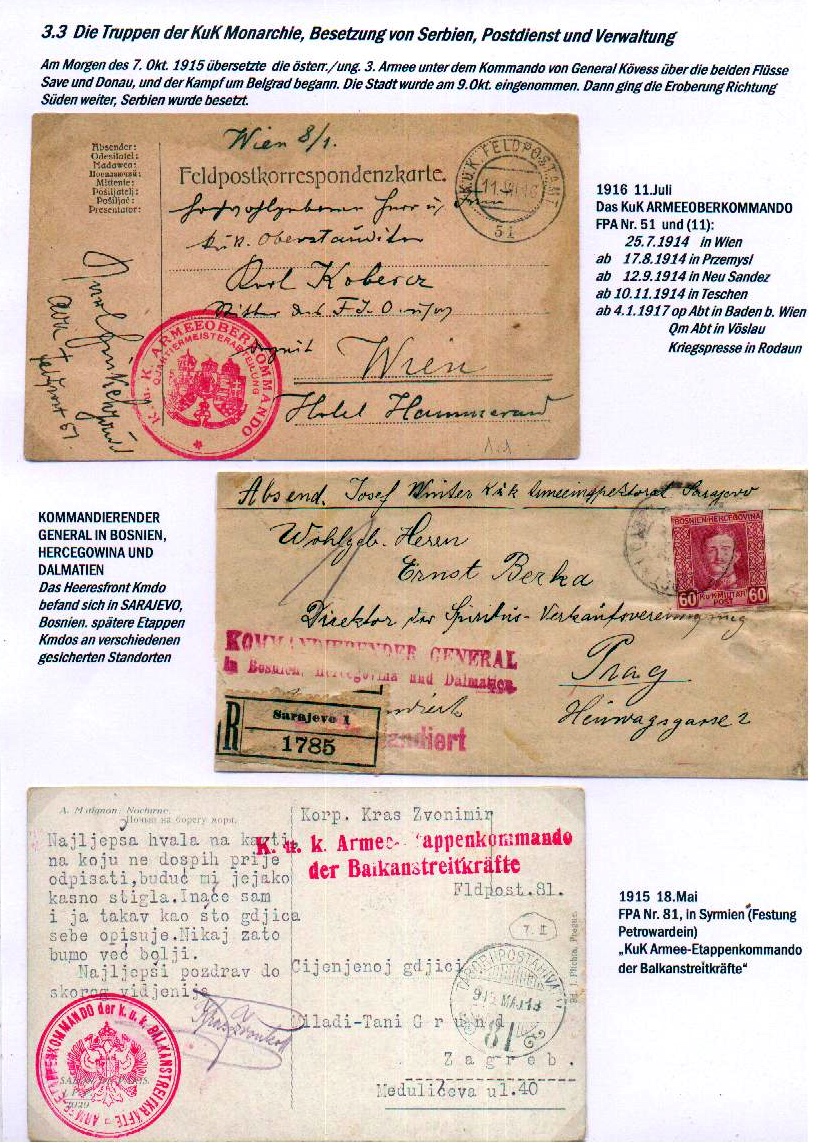 3.3 Die Truppen der KuK Monarchie, Besetzung von Serbien, Postdienst und Verwaltung
Am Morgen des 7. Okt. 1915 übersetzte die österr./ung. 3. Armee unter dem Kommando von General Kövess über die beiden Flüsse
Save und Donau, und der Kampf um Belgrad begann. Die Stadt wurde am 9.Okt. eingenommen. Dann ging die Eroberung Richtung
Süden weiter, Serbien wurde besetzt.
Absender:
Odesílatel:
Nadawca:
Mittente:
Pošiljatelj:
Pošiljač:
Presentator:
Wien 8/1.
Feldpostkorrespondenzkarte.
K.u.K. FELDPOSTAMT
11.VII.16
51
Karl
Wien
Hotel Hammerand
K. u. K. ARMEEOBERKOMMANDO
QUARTIERMEISTERABTEILUNG
1916 11.Juli
Das KuK ARMEEOBERKOMMANDO
FPA Nr. 51 und (11):
25.7.1914 in Wien
ab 17.8.1914 in Przemysl
ab 12.9.1914 in Neu Sandez
ab 10.11.1914 in Teschen
ab 4.1.1917 op Abt in Baden b. Wien
Qm Abt in Vöslau
Kriegspresse in Rodaun
KOMMANDIERENDER
GENERAL IN BOSNIEN,
HERCEGOWINA UND
DALMATIEN
Das Heeresfront Kmdo
befand sich in SARAJEVO,
Bosnien. spätere Etappen
Kmdos an verschiedenen
gesicherten Standorten
Absend. Josef Winter k.u.k. Armeeinspektorat Sarajevo
Wohlgeb. Herren
Ernst Berka
Direktor der Spiritus-Verkaufsvereinigung
Prag
Heuwagsgasse 2
BOSNIEN-HERCEGOVINA
60 K.u.K. MILITÄR POST 60
KOMMANDIERENDER GENERAL
in Bosnien, Hercegovina und Dalmatien.
R
Sarajevo 1
1785
andiert
A. Matignon: Nocturne.
Korp. Kras Zvonimir
K. u. k. Armee- tappenkommando
der Balkanstreitkräfte
Fldpost.81.
Najljepsa hvala na karti
na koju ne dospih prije
odpisati,buduć mi jejako
kasno stigla.Inače sam
i ja takav kao što gdjica
sebe opisuje.Nikaj zato
bumo već bolji.
Najljepši pozdrav do
skorog vidjenija
Cijenjenoj gdjici
Miladi-Tani Grund
Zagreb.
Medulićeva ul.40
7. II
TÁBORI POSTAHIVATAL
915 MAJ 18
81
ARMEE-ETAPPENKOMMANDO der k.u.k. BALKANSTREITKRÄFTE
1915 18.Mai
FPA Nr. 81, in Syrmien (Festung
Petrowardein)
„KuK Armee-Etappenkommando
der Balkanstreitkräfte“